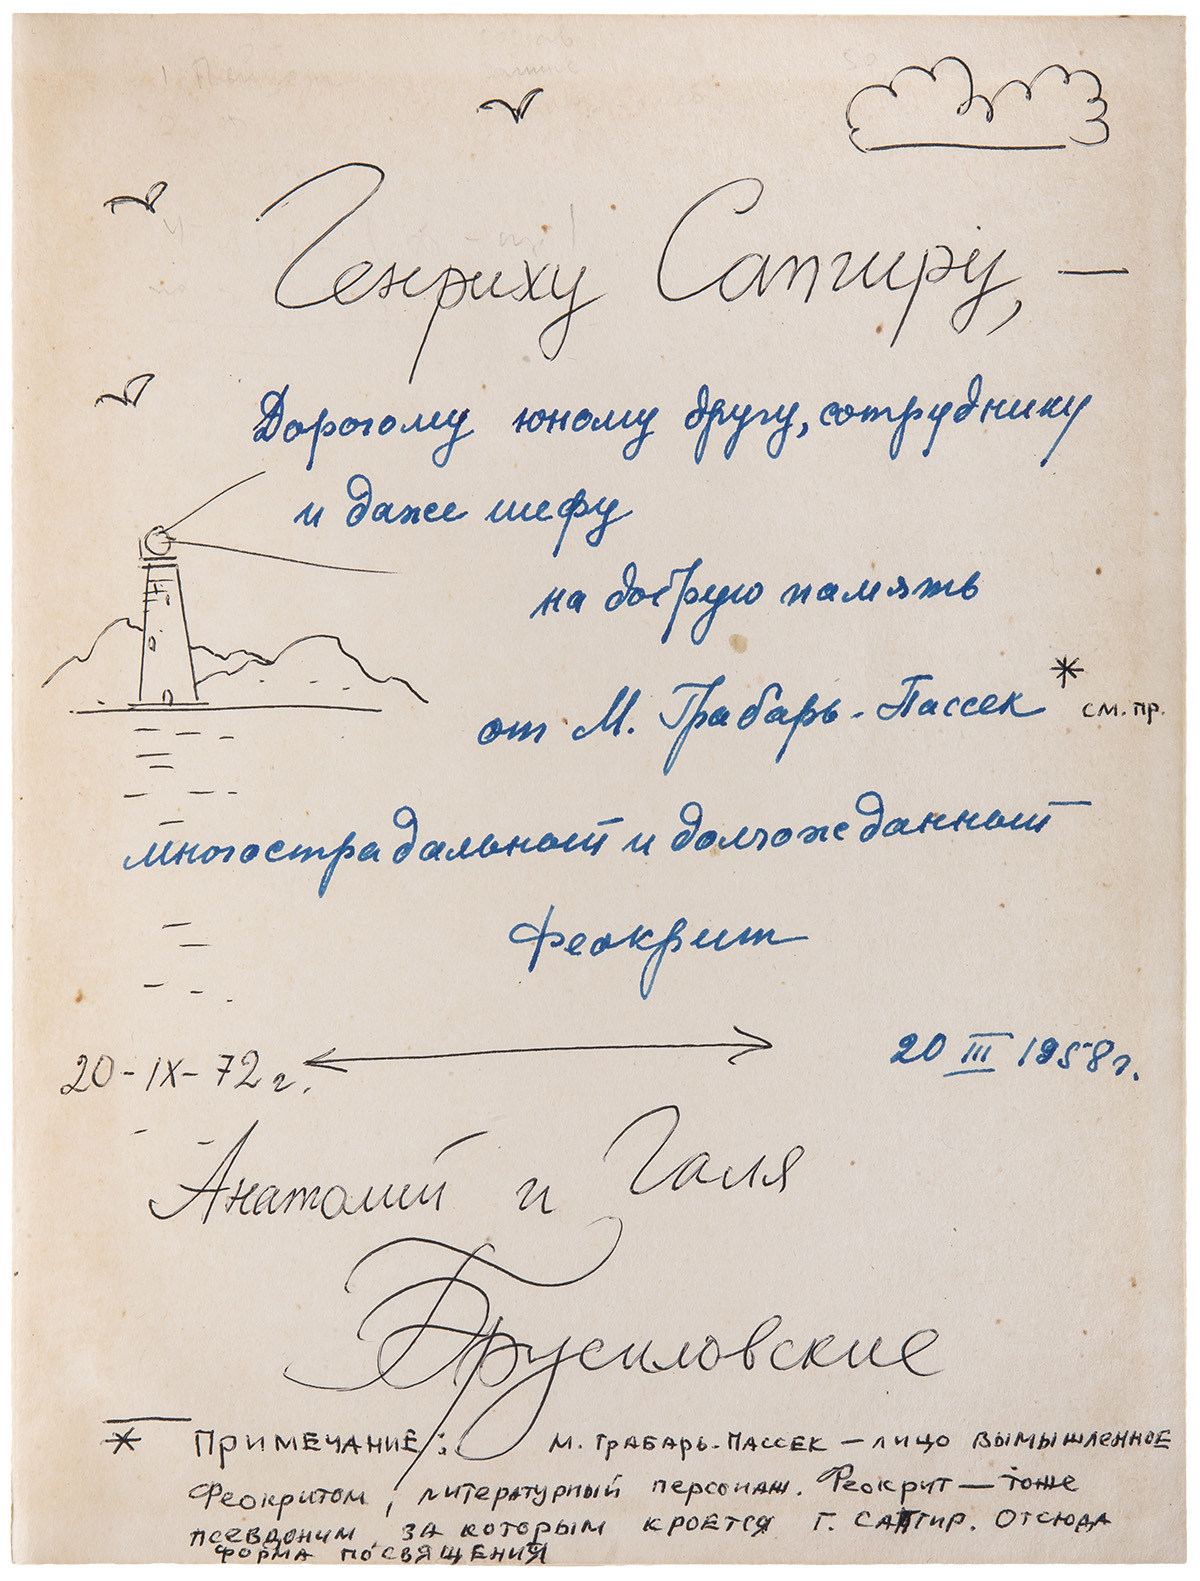 Генриху Сапгиру, —
Дорогому юному другу, сотруднику
и даже шефу
на добрую память
от М. Грабарь-Пассек * см. пр.
многострадальной и долгожданной
Феокрит
20-IX-72 г.
20 III 1958 г.
Анатолий и Галя
Брусиловские
* Примечание: М. Грабарь-Пассек — лицо вымышленное
Феокритом, литературный персонаж. Феокрит — тоже
псевдоним, за которым кроется Г. Сапгир. Отсюда
форма посвящения